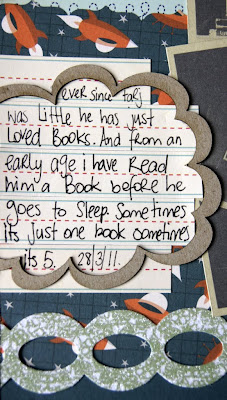 ever since tarj
was little he has just
Loved Books. And from an
early age i have Read
him a Book before he
goes to Sleep. Sometimes
its just one book sometimes
its 5. 28/3/11.